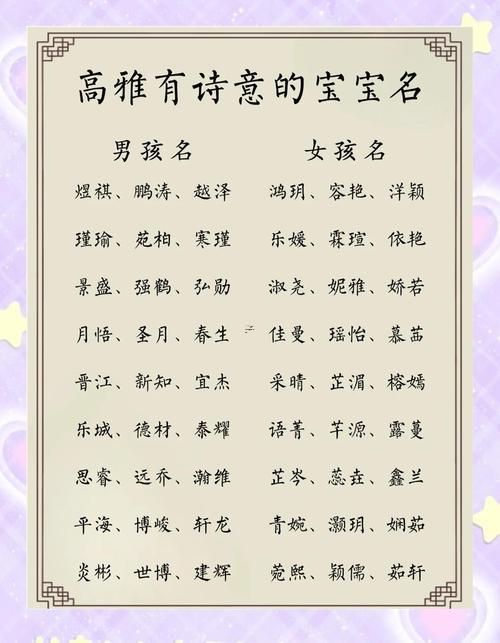 高雅有诗意的宝宝名
男孩名 女孩名
煜祺、鹏涛、越泽 鸿玥、容艳、洋颖
瑾瑜、苑柏、寒瑾 乐媛、霖瑄、依艳
景盛、强鹤、弘勋 淑尧、妮雅、娇若
月悟、圣月、春生 佳曼、瑶怡、慕茁
晋江、新知、宜杰 采晴、芷湄、榕嫣
乐城、德材、泰耀 语菁、芊源、露蔓
思睿、远乔、瀚维 芷岑、蕊垚、鑫兰
平海、博峻、轩龙 青婉、灏玥、娴茹
炎彬、世博、建辉 菀熙、颖儒、茹轩